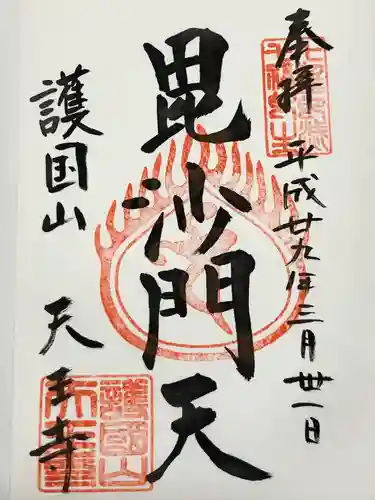 奉拝
平成廿九年三月卅一日
毘沙門天
護国山
天王寺